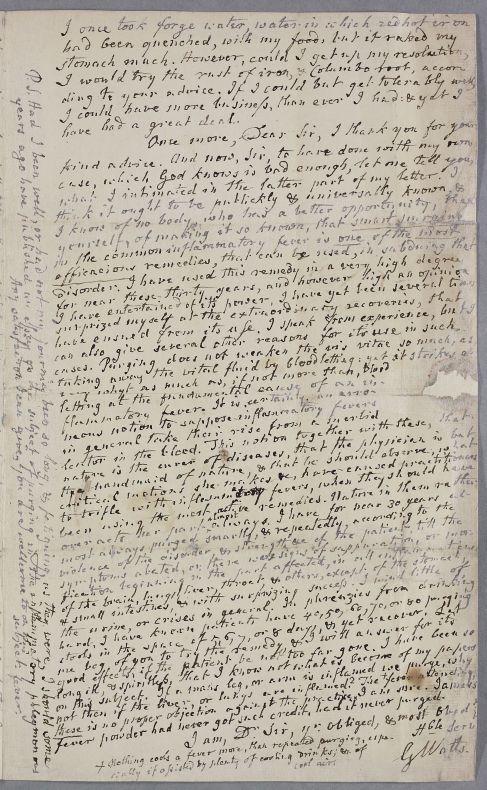 I once took forge water, water in which redhot iron
had been quenched, with my food, but it raked my
stomach much. However, could I get up my resolution,
I would try the rust of iron, & Columba root, accor
ding to your advice. If I could but get tolerably well
I could have more business, than ever I had: & yet I
have had a great deal.
Once more, Dear Sir, I thank you for your
kind advice. And now, Sir, to have done with my own
case, which God knows is bad enough, let me tell you,
what I intimated in the latter part of my letter. I
think it ought to be publickly & universally known, &
I know of no body, who has a better opportunity, than
yourself, of making it so known, that smart purging
in the common inflammatory fever is one of the most
efficacious remedies, that can be used, in subduing that
disorder. I have used this remedy in a very high degree
for near these thirty years, and however high an opinion
I have entertained of its power, I have yet been several times
surprized myself at the extraordinary recoveries, that
have ensued from its use. I speak from experience, but I
can also give several other reasons for its use in such
cases. Purging does not weaken the vis vitae so much, as
taking away the vital fluid by bloodletting: yet it strikes
as much as, if not more than, blood
letting at the fundamental cause of an in-
flammatory fever. It is certainly an erro-
neous notion to suppose inflammatory fevers
in general take their rise from a morbid
lentor in the blood. This notion together with these, that
nature is the curer of diseases, that the physician is but
the handmaid of nature, & that he should observe, what
critical motions she makes &c, have caused practitioners
to trifle with inflammatory fevers, when they should have
been using the most active remedies. Nature in them rather
overacts her part always. I have for near 30 years al-
most always purged smartly, & repeatedly, according to the
violence of the disorder, & strength of the patient, till the
symptoms abated, or there were signs of suppuration, or mor-
tification beginning in the part affected, in all inflammations
of the brain, lungs, liver, throat, & others, except of the stomach
& small intestines, & with surprizing success. I mind little of
the urine, or crises in general. In phrenzies from drinking
hard, I have known patients have 40, 50, 60, 70, or 80 purging
stools in the space of 5, 6, 7, or 8 days, & yet recover. Let
me beg of you to try the remedy & I will answer for its
good effects, if the patient be not too far gone. I have been so
long ill, & spiritless, that I know not what is become of my papers
on this subject. If a mans leg, or arm is inflamed we purge, why
not then, if the liver, or lungs are inflamed. The fever's
these is no proper objection against the practice, I am sure. James's
fever powder had never got such credit, had it never purged.
I am, Dr Sir, yr obliged, & most obed
Hble Serv
G Watts.
+ Nothing cools a fever more, than repeated purging, espe-
cially if assisted by plenty of cooling drinks, & of
cool air.
P.S. Had I been well, or had not my journey been so long & fatiguing as they were, I should some
years ago have published an essay upon the subject of purging in the inflammatory peripneumonies